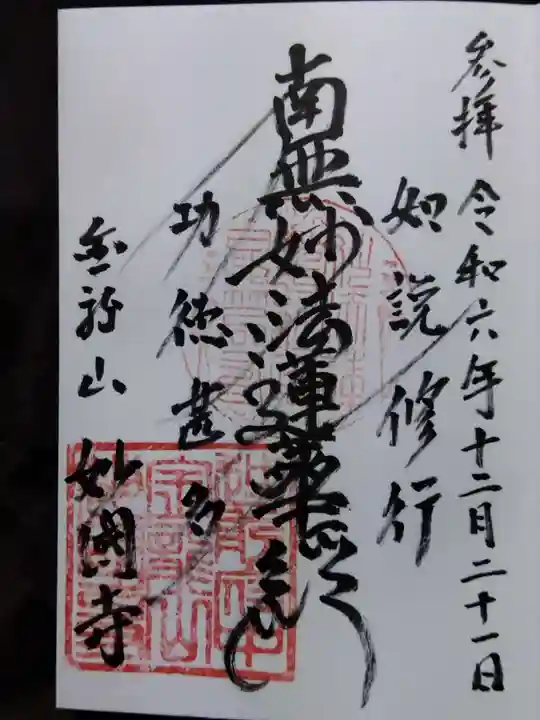 参拝 令和六年十二月二十一日
如説修行
南無妙法蓮華経
功徳甚多
山 妙圀寺